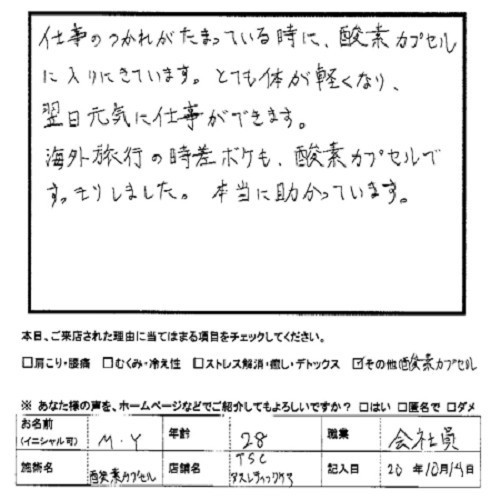 仕事のつかれがたまっている時に、酸素カプセル
に入りにきています。とても体が軽くなり、
翌日元気に仕事ができます。
海外旅行の時差ボケも、酸素カプセルで
すっきりしました。本当に助かっています。
本日、ご来店された理由に当てはまる項目をチェックしてください。
□肩こり・腰痛 □むくみ・冷え性 □ストレス解消・癒し・デトックス ☑その他(酸素カプセル
※ あなた様の声を、ホームページなどでご紹介してもよろしいですか? □はい □匿名で □ダメ
お名前(イニシャル可) M.Y 年齢 28 職業 会社員
施術名 酸素カプセル 店舗名 TSC 記入日 20年10月14日